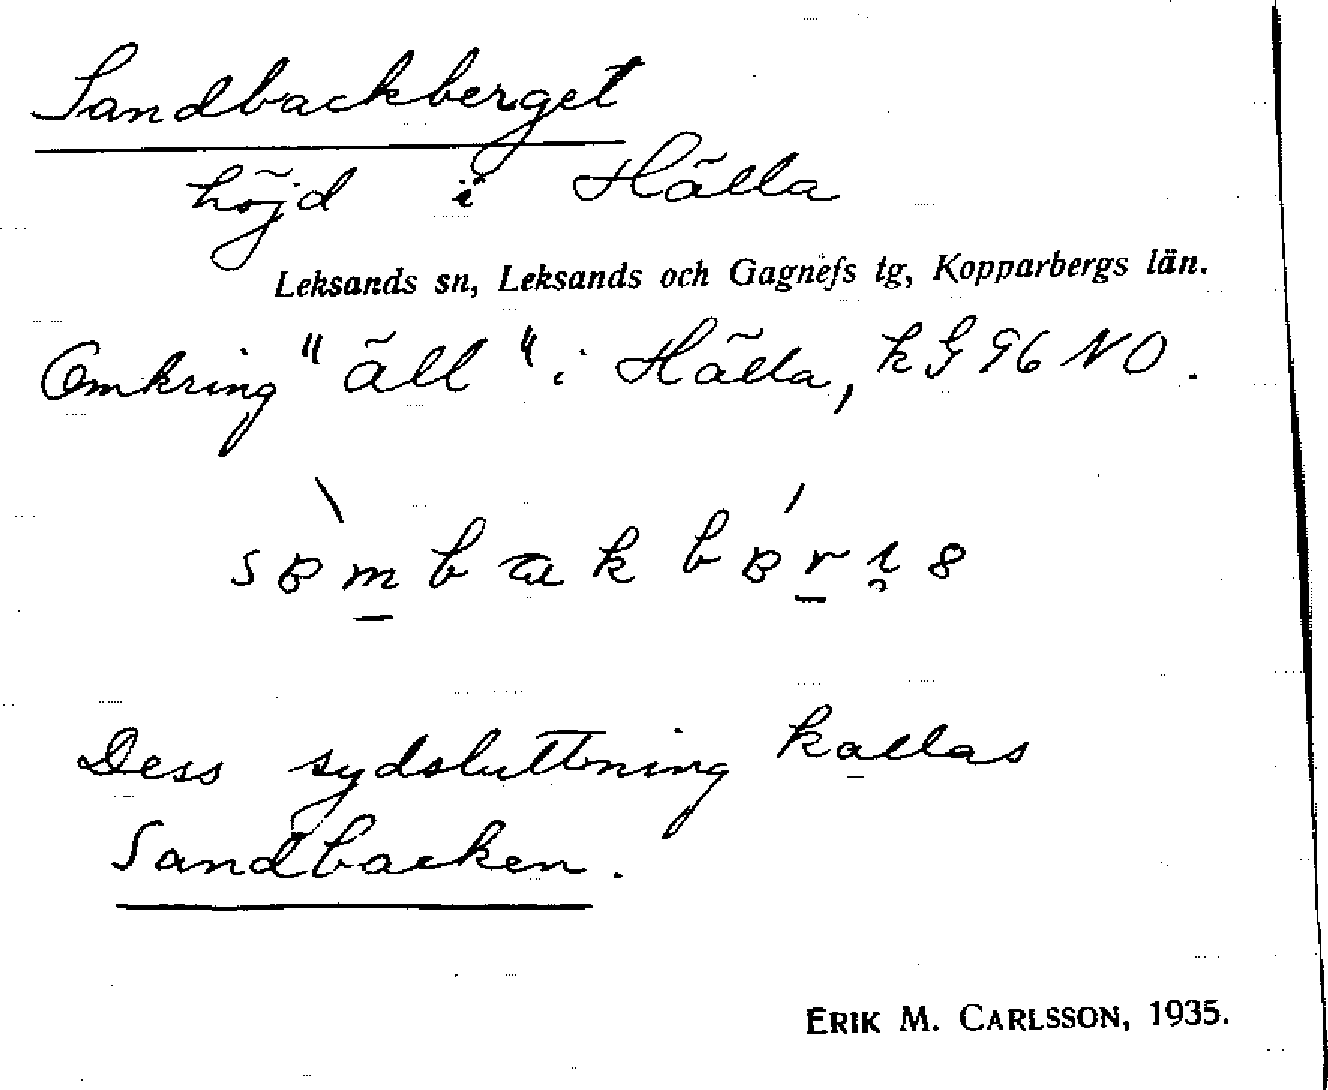 Sandbackberget
höjd i Hälla
Leksands sn, Leksands och Gagnefs tg, Kopparbergs län.
Omkring "äll" i Hälla, kG 96 NO.
Dess sydsluttning kallas
Sandbacken.
ERIK M. CARLSSON, 1935.